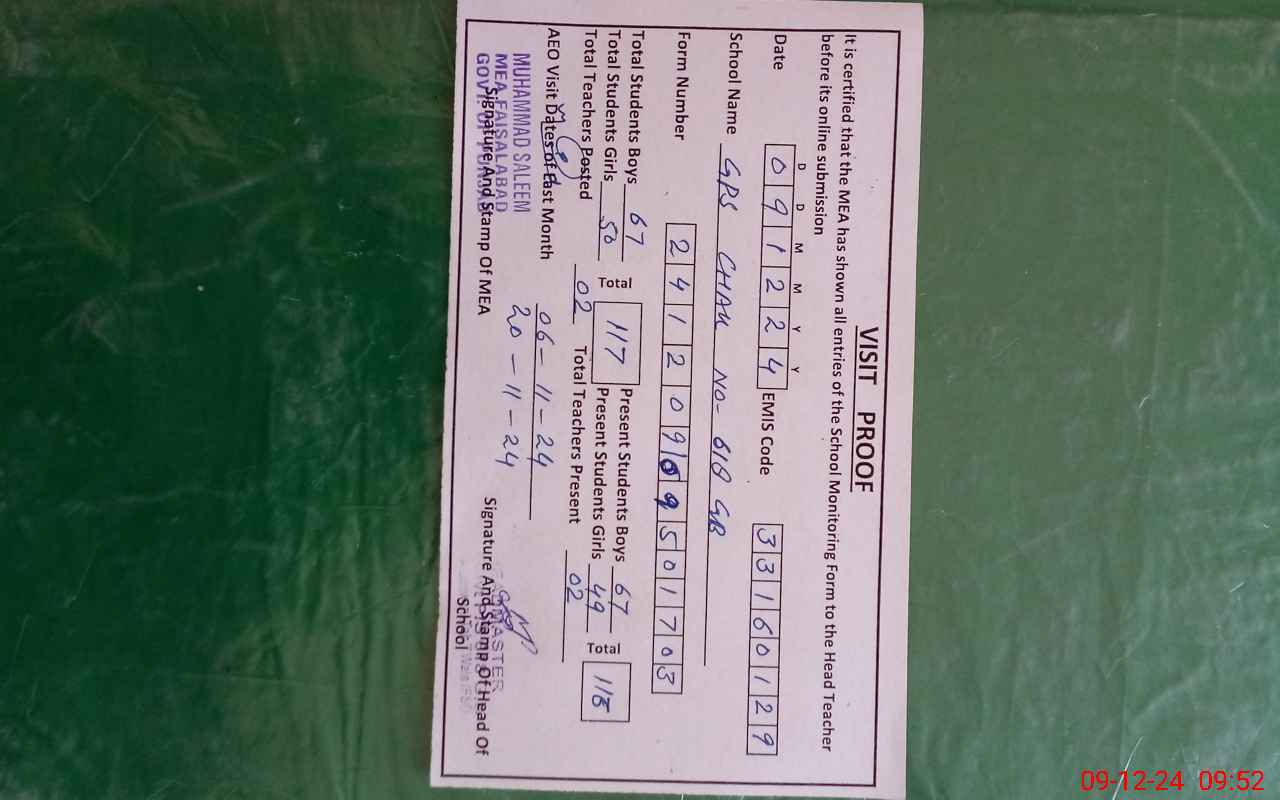 VISIT PROOF
It is certified that the MEA has shown all entries of the School Monitoring Form to the Head Teacher
before its online submission
D D M M Y Y
Date 0 9 1 2 2 4 EMIS Code 3 3 1 6 0 1 2 9
School Name GPS CHAK NO- 618 GB
Form Number 2 4 1 2 0 9 0 9 5 0 1 7 0 3
Total Students Boys 67 Total 117 Present Students Boys 67 Total 116
Total Students Girls 50 Present Students Girls 49
Total Teachers Posted 02 Total Teachers Present 02
AEO Visit Dates of Last Month 06-11-24
20-11-24
MUHAMMAD SALEEM
MEA FAISALABAD
GOVT. OF PUNJAB
Signature And Stamp Of MEA
MASTER
Signature And Stamp Of Head Of
School
09-12-24 09:52